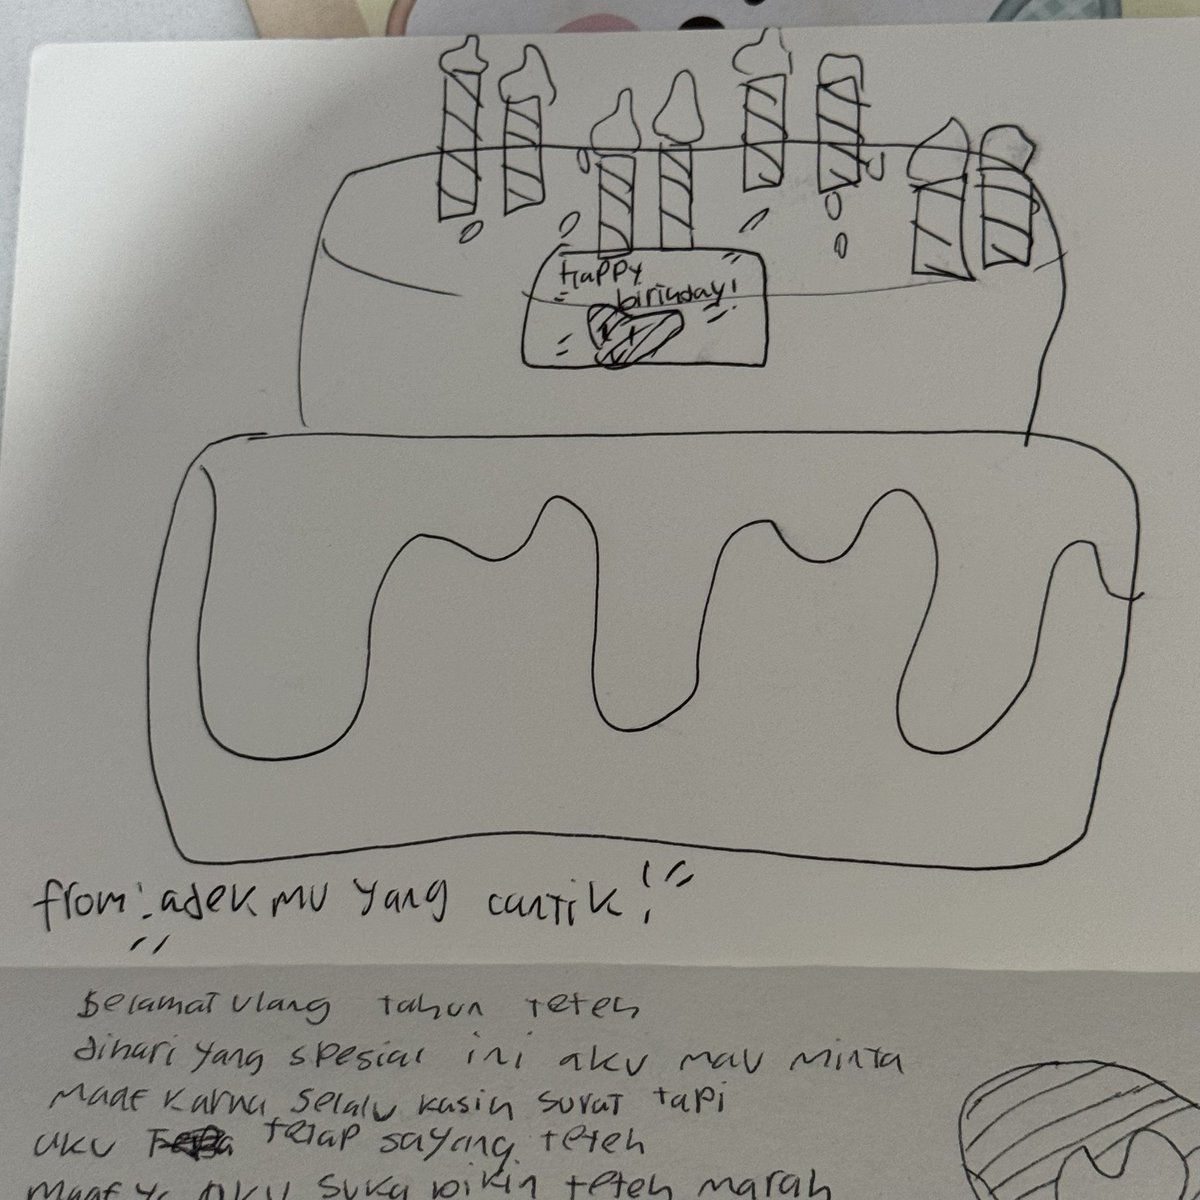 Happy
birthday!
from: adek mu yang cantik!
Selamat Ulang tahun teteh
dihari yang spesial ini aku mau minta
maaf karna selalu kasih surat tapi
aku tetap sayang teteh
maaf ya aku suka bikin teteh marah